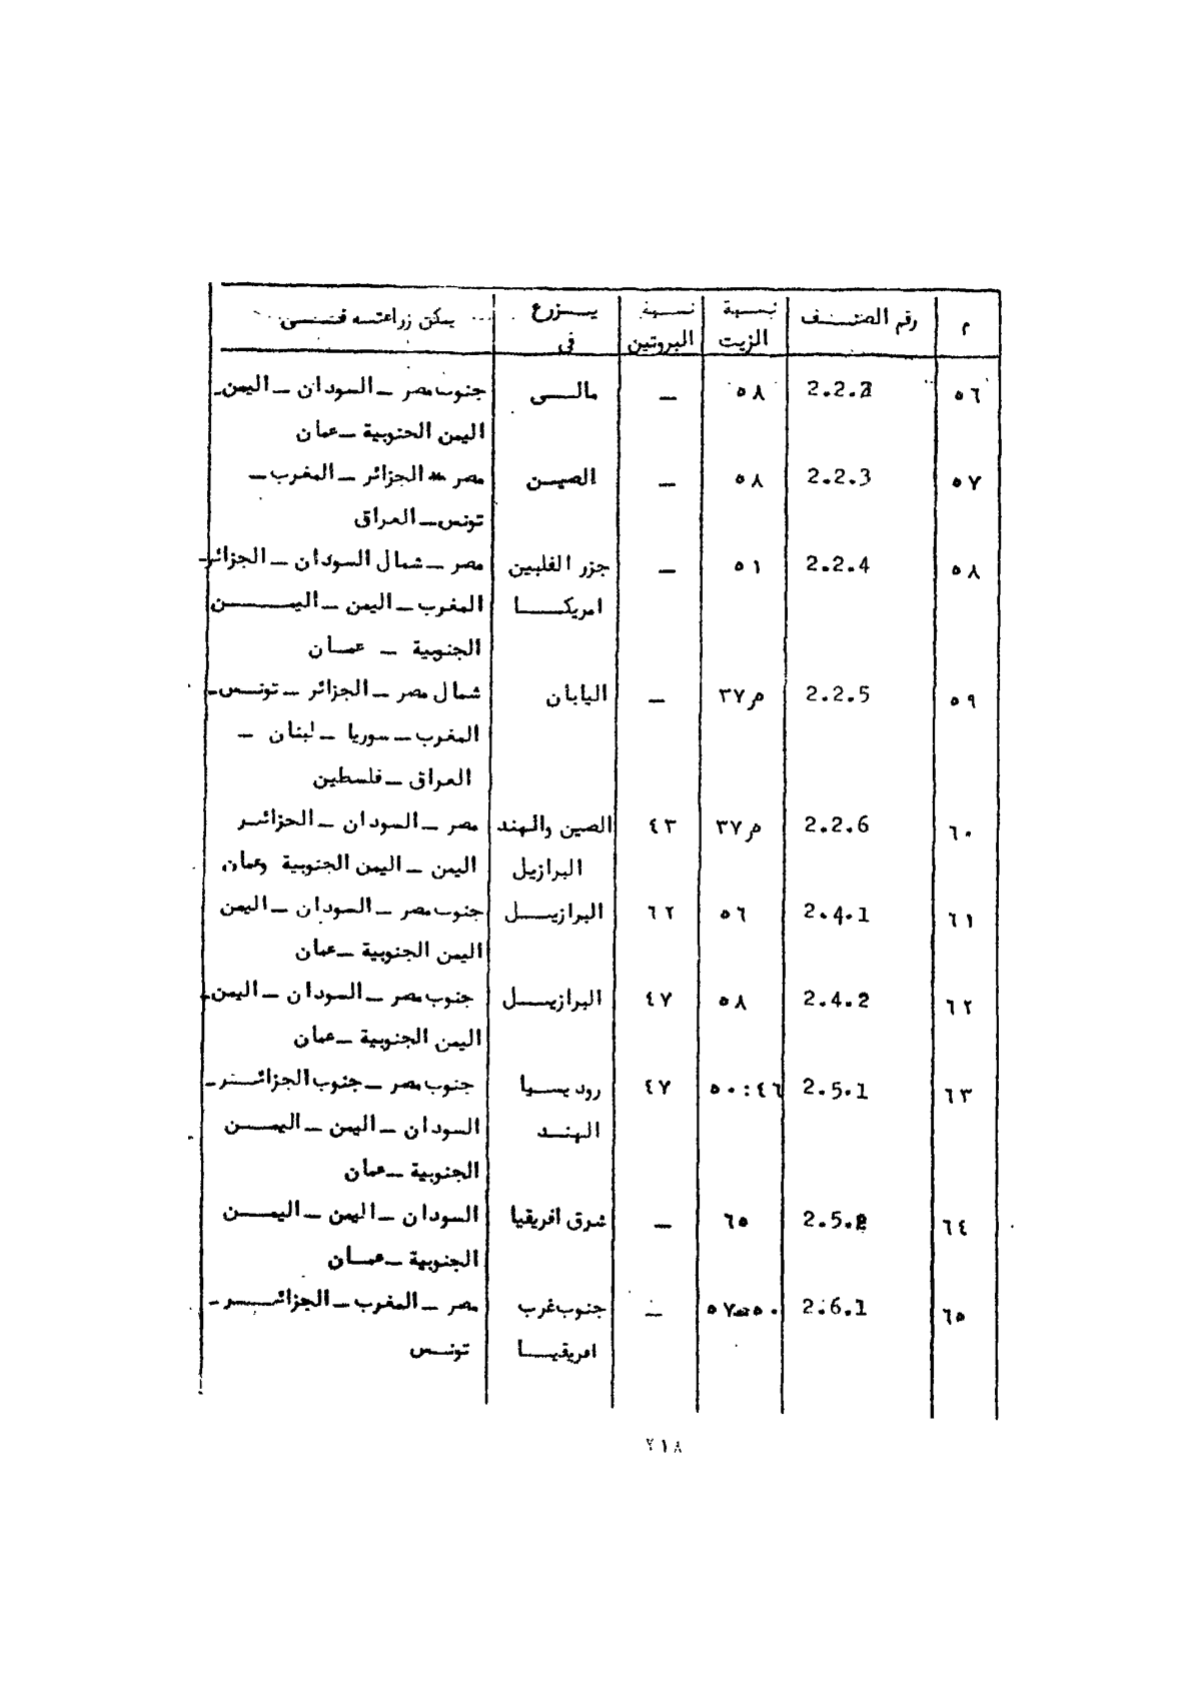 م	رقم الصنف	نسبة الزيت	نسبة البروتين	يزرع فى	يمكن زراعته فى
٥٦	2.2.2	٥٨	ـ	مالى	جنوب مصر ـ السودان ـ اليمن ـ
اليمن الجنوبية ـ عمان
٥٧	2.2.3	٥٨	ـ	الصين	مصر ـ الجزائر ـ المغرب ـ
تونس ـ العراق
٥٨	2.2.4	٥١	ـ	جزر الفلبين	مصر ـ شمال السودان ـ الجزائر ـ
امريكا	المغرب ـ اليمن ـ اليمن
الجنوبية ـ عمان
٥٩	2.2.5	٣٧م	ـ	اليابان	شمال مصر ـ الجزائر ـ تونس ـ
المغرب ـ سوريا ـ لبنان ـ
العراق ـ فلسطين
٦٠	2.2.6	٣٧م	٤٣	الصين والهند	مصر ـ السودان ـ الجزائر
البرازيل	اليمن ـ اليمن الجنوبية وعمان
٦١	2.4.1	٥٦	٦٢	البرازيل	جنوب مصر ـ السودان ـ اليمن
اليمن الجنوبية ـ عمان
٦٢	2.4.2	٥٨	٤٧	البرازيل	جنوب مصر ـ السودان ـ اليمن ـ
اليمن الجنوبية ـ عمان
٦٣	2.5.1	٥٠:٤٦	٤٧	روديسيا	جنوب مصر ـ جنوب الجزائر ـ
الهند	السودان ـ اليمن ـ اليمن
الجنوبية ـ عمان
٦٤	2.5.2	٦٥	ـ	شرق افريقيا	السودان ـ اليمن ـ اليمن
الجنوبية ـ عمان
٦٥	2.6.1	٥٧ـ٥٠	ـ	جنوب غرب	مصر ـ المغرب ـ الجزائر ـ
افريقيا	تونس
٢١٨